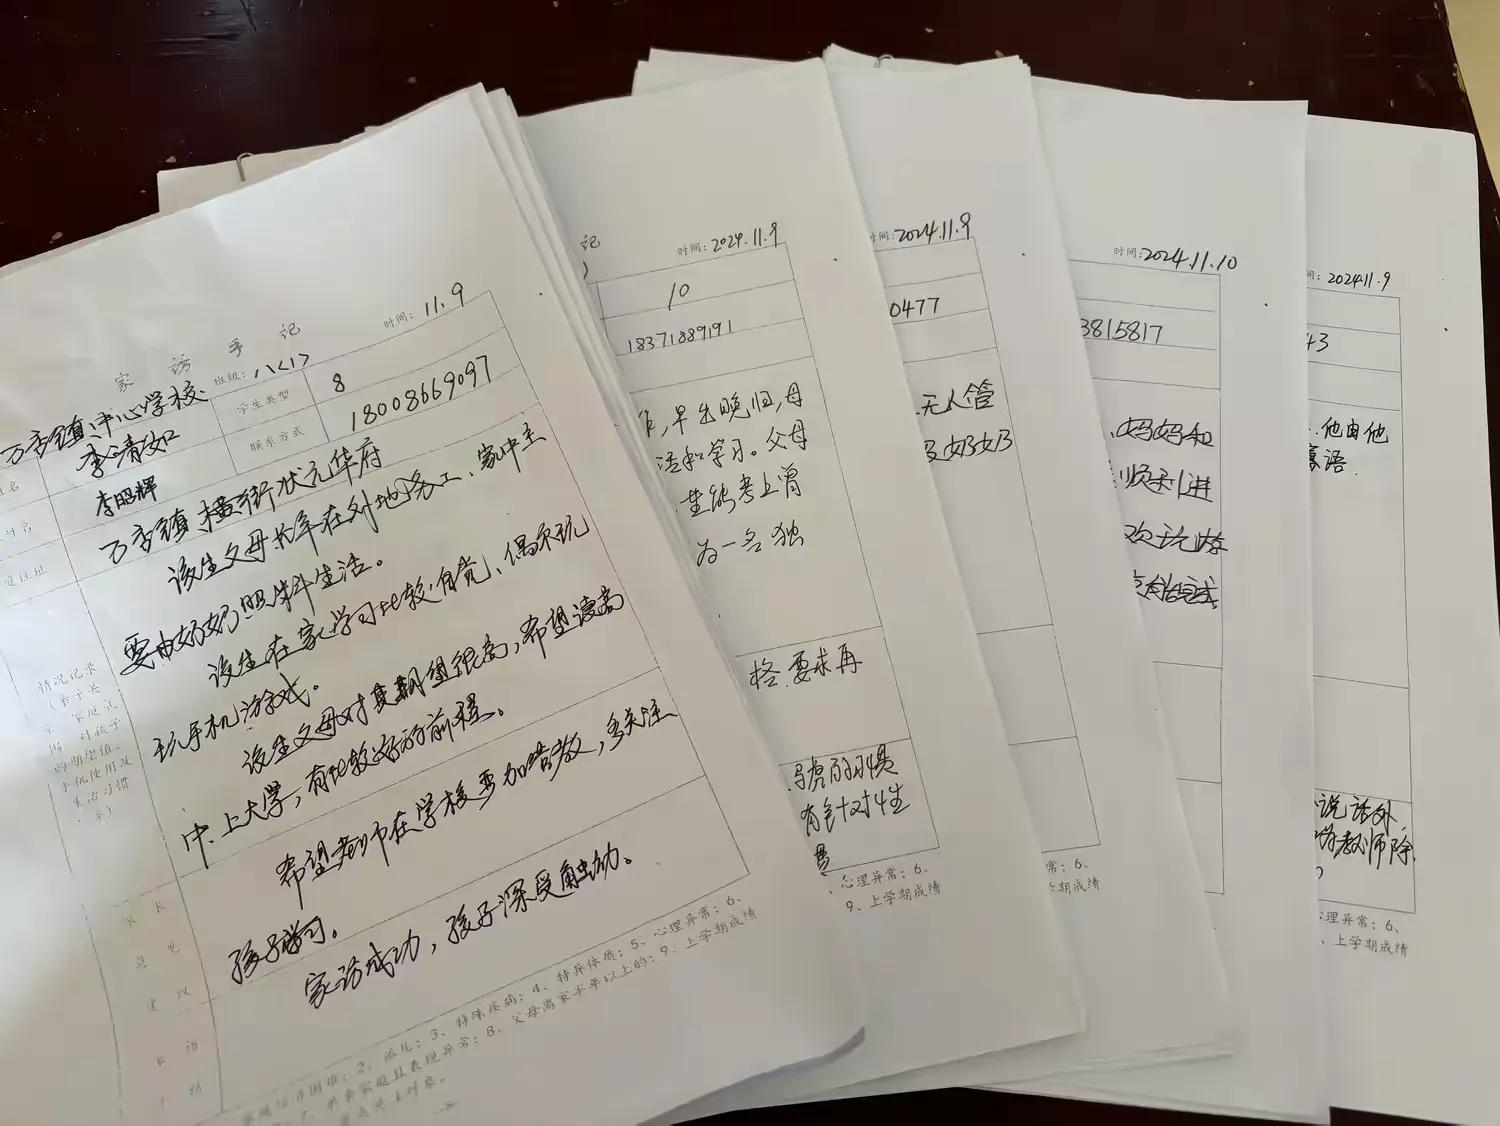 家 访 手 记
时间：11.9
万李镇中心学校
班级：八<1>
姓名
李清如
学生类型
8
李昭辉
联系方式
18008669097
庭住址
万李镇横街状元华府
情况记录
（亲子关
系、家庭氛
围、对孩子
的期望值、
手机使用及
生活习惯
等）
该生父母长年在外地务工、家中主
要由奶奶照料生活。
该生在家学习比较自觉、偶尔玩
玩手机游戏。
该生父母对其期望很高，希望读高
中、上大学，有比较好的前程。
家 长
意 见
建 议
希望老师在学校要加管教，多关注
孩子学习。
家 访
小 结
家访成功，孩子深受触动。
2、孤儿；3、特殊疾病；4、特异体质；5、心理异常；6、
8、父母离家半年以上的；9、上学期成绩
记
时间：2024.11.9
10
18371889191
早出晚归，母
活和学习。父母
生能考上普
为一名独
格要求再
马虎的习惯
有针对性
心理异常；6、
9、上学期成绩
间：2024.11.9
0477
无人管
奶奶
常；6、
上学期成绩
时间：2024.11.10
3815817
妈妈和
顺利进
欢玩
完成
间：2024.11.9
43
他由他
寡语.
说话外
教师除
心理异常；6、
、上学期成绩